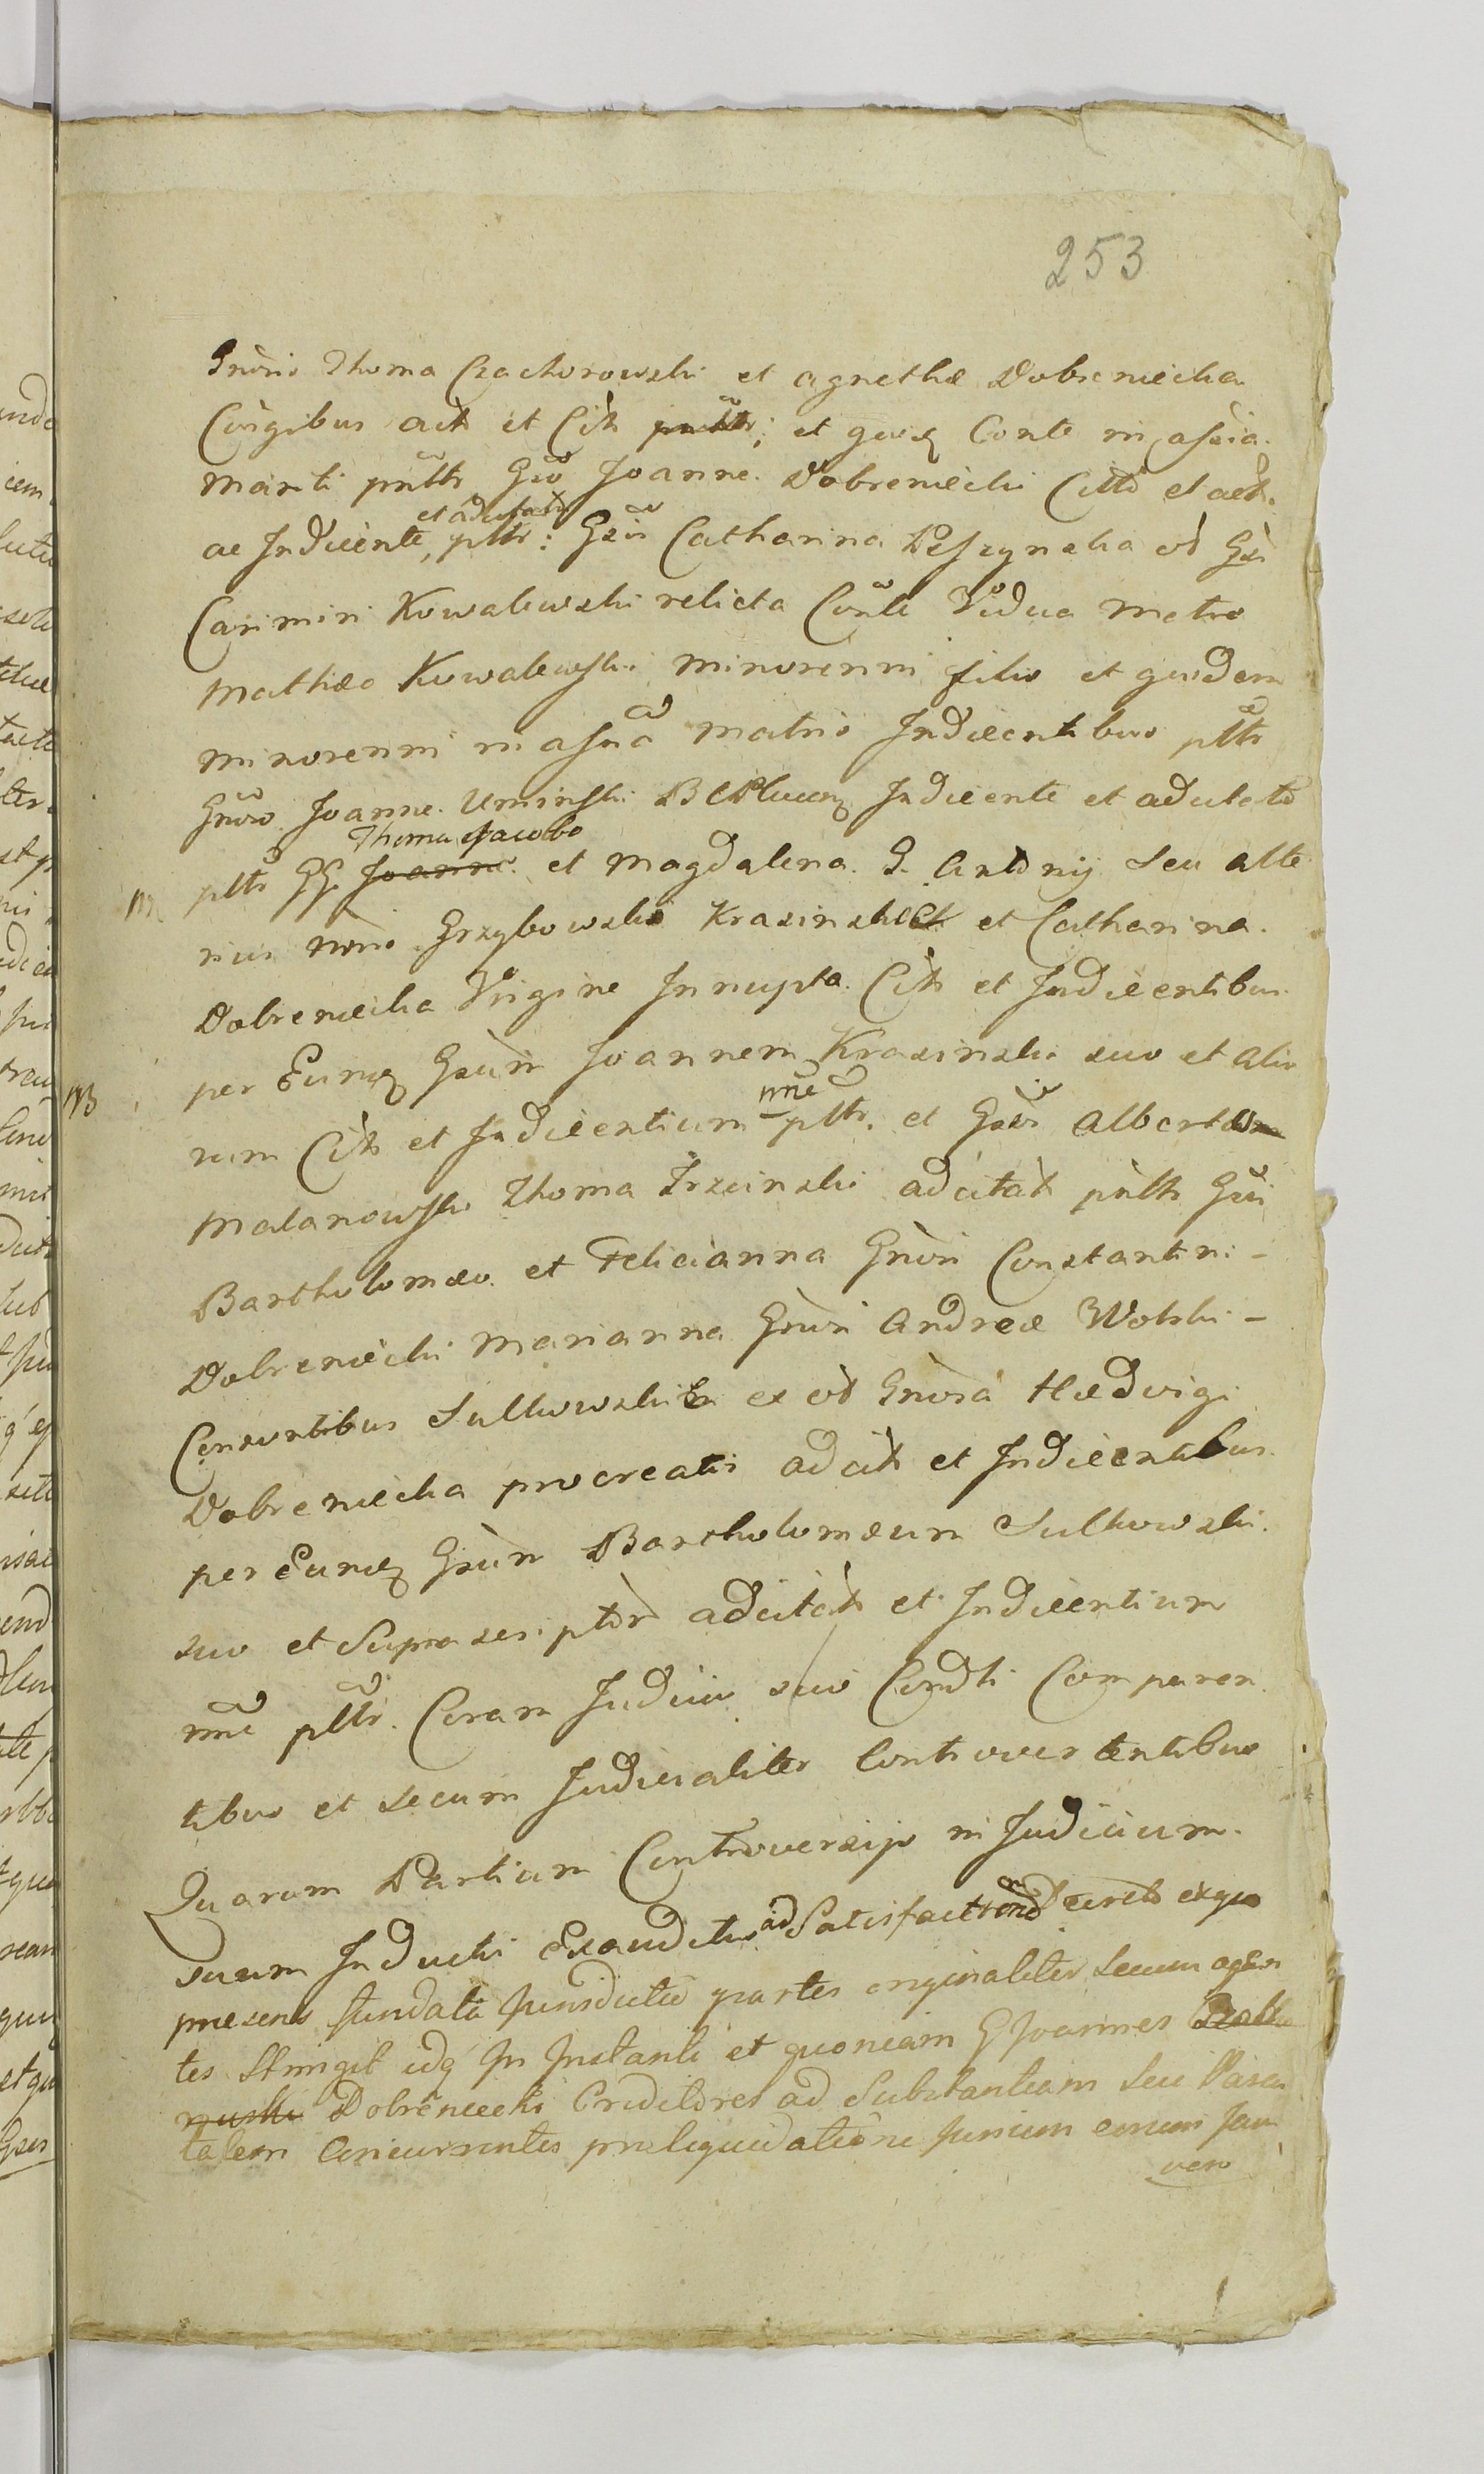 253
Gnoris Thoma Czachorowski et Agnethæ Dobreniecka
Cõngibus act et Cit et Conte in assia
Mariti pnttr Gso Joanne Dobreniecki Citto et act
et adcitato
ac Indicente, pttr: Gsa Catharina Peszynska
Casimiri Kowalewski relicta Conte Vidua Matre
Mathæo Kowalewski minorenni filio et quidem
minorenni in assna Matris Indicentibus pttr
Gnoso Joanne Uminski Indicente et adcitato
Thoma Jacobo
pttr GG Joanne et Magdalena G. Antonij Seu alte
rius nõnis Grzybowski Krasinski et Catharina
Dobreniecka Virgine Innupta Cit et Indicentibus
per Eumq Gsum Joannem Krasinski suo et alio
nne
rum Cit et Indicentium pttr. et Gsis Alberto
Malanowski Thoma Trzcinski adcitat pnttr Gsi
Bartholomæo et Felicianna Gnosi Constantini -
Dobreniecki Marianna Gnosi Andreæ Wolski -
Consortibus Sulkowski ex od Gnosa Hædvigi
Dobreniecka procreatis adcit et Indicentibus
per Eumq Gsum Bartholomæum Sulkowski
suo et Suprascriptor adcitat et Indicentium
nne pttr. Coram Judicio suo Condti Comparen
tibus et secum Judicialiter Controvertentibus
Quarum Partium Controversijs in Judicium
suum Inductis Exauditis ad Satisfaction Decreto exquo
presens fundata Jurisdictio partes originaliter secum agen
tes Stringit idq In Instanti et quoniam G Joannes
Dobreniecki Creditores ad Substantiam Seu
talem Concurrentes pro liquidatione Jurium eorum
vero